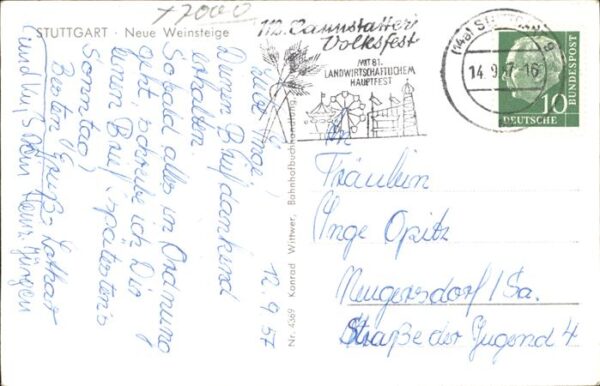 +7000
STUTTGART · Neue Weinsteige
112. Cannstatter
Volksfest
MIT 81.
LANDWIRTSCHAFTLICHEM
HAUPTFEST
(14a) STUTTGART 9
14.9.57-16
DEUTSCHE
BUNDESPOST
10
12.9.57
Liebe Inge,
Deinen Brief dankend
erhalten.
Sobald alles in Ordnung
geht, schreibe ich Dir
einen Brief, spätestens
Sonntag,
Besten Gruß Lothar
(und Hans-Jürgen
Nr. 4369 Konrad Wittwer, Bahnhofbuchhandlung,
An
Fräulein
Inge Opitz
Neugersdorf/Sa.
Straße der Jugend 4